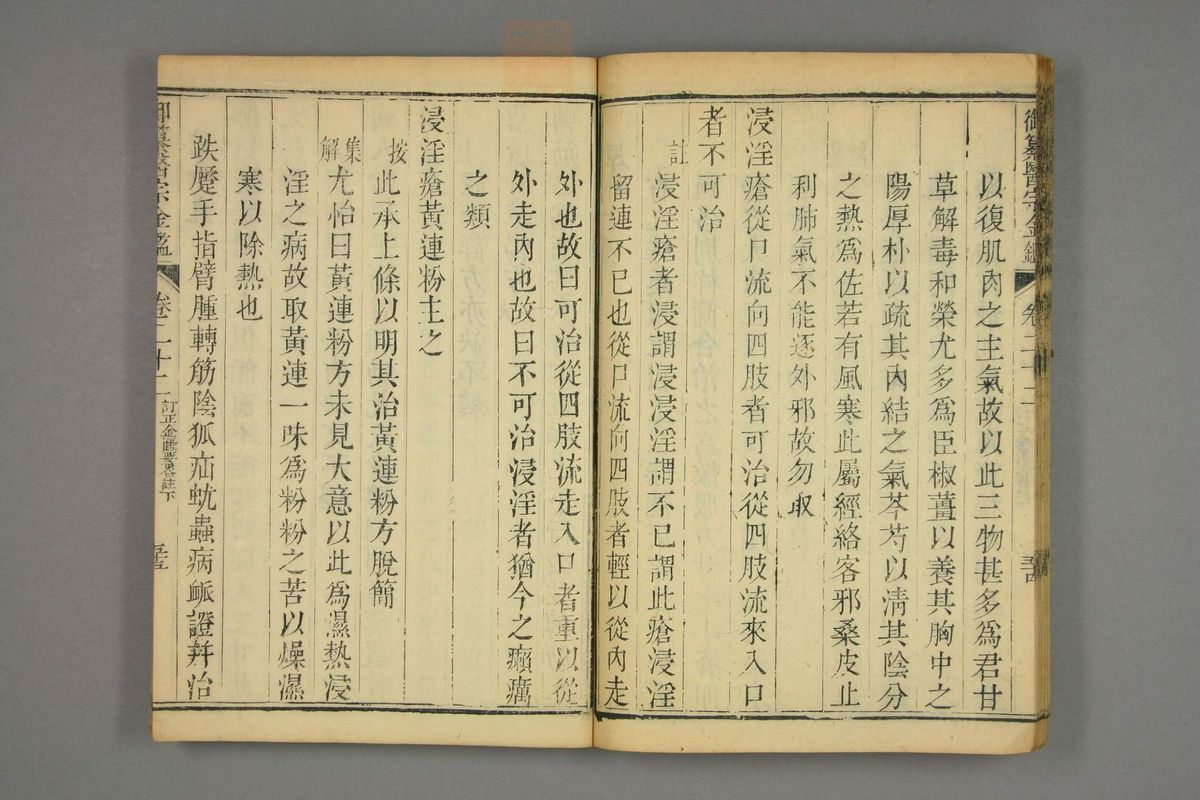 御纂醫宗金鑑 卷二十二
以復肌肉之主氣故以此三物甚多爲君甘
草解毒和榮尤多爲臣椒薑以養其胸中之
陽厚朴以疏其內結之氣芩芍以淸其陰分
之熱爲佐若有風寒此屬經絡客邪桑皮止
利肺氣不能逐外邪故勿取
浸淫瘡從口流向四肢者可治從四肢流來入口
者不可治
註
浸淫瘡者浸謂浸浸淫謂不已謂此瘡浸淫
留連不已也從口流向四肢者輕以從內走
外也故曰可治從四肢流走入口者重以從
外走內也故曰不可治浸淫者猶今之癩癘
之類
浸淫瘡黃連粉主之
按
此承上條以明其治黃連粉方脫簡
集解
尤怡曰黃連粉方未見大意以此爲濕熱浸
淫之病故取黃連一味爲粉粉之苦以燥濕
寒以除熱也
趺蹷手指臂腫轉筋陰狐疝蚘蟲病脈證幷治
御纂醫宗金鑑 卷二十二 訂正金匱要畧註下